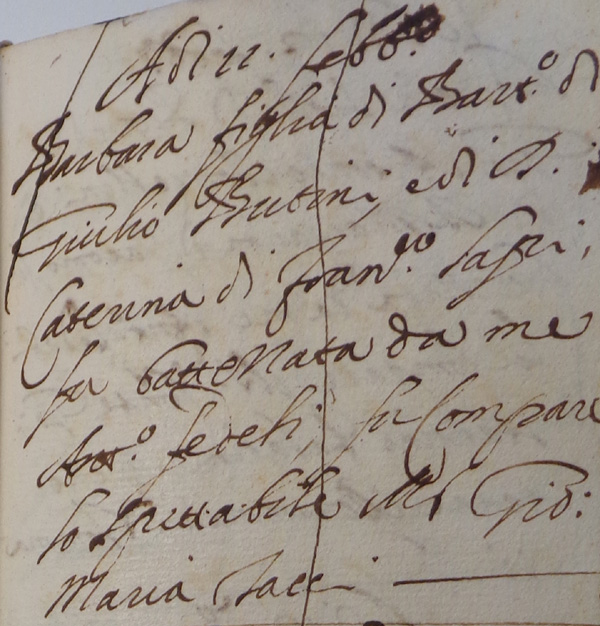 Adi 22. febb.o
Barbara figlia di Bart.o di
Giulio Butini, e di D.
Caterina di Fran.co
fu battezzata da me
Ant.o fedeli, fu Compare
lo spettabile Gio:
Maria